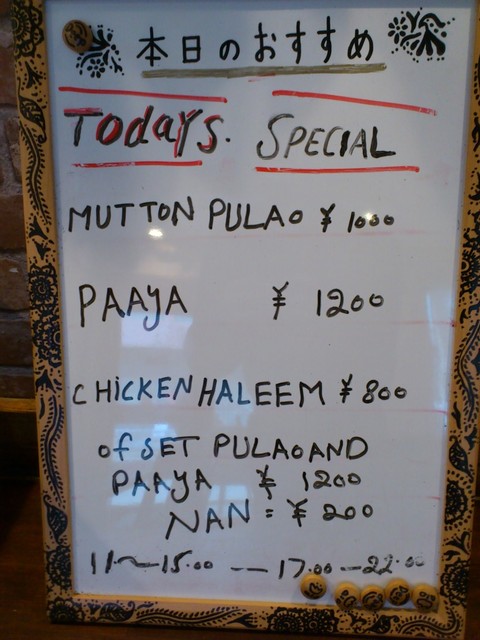 本日のおすすめ
Todays. SPECIAL
MUTTON PULAO ¥ 1000
PAAYA ¥ 1200
CHICKEN HALEEM ¥ 800
of SET PULAO AND
PAAYA ¥ 1200
NAN = ¥ 200
11~15.00 — 17.00 — 22.00